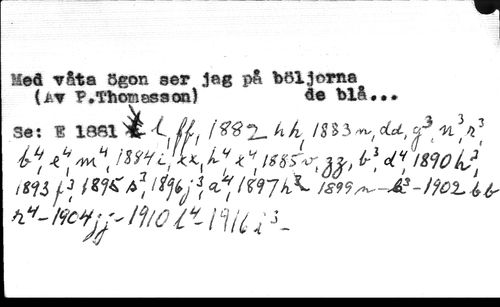 Med våta ögon ser jag på böljorna
(Av P.Thomasson) de blå...
Se: E 1881 l, ff, 1882 hh, 1883 n, dd, g³, n³, r³,
b⁴, e⁴, m⁴, 1884 i, xx, h⁴ x⁴, 1885 v, zz, b³, d⁴, 1890 h²,
1893 f³, 1895 s³, 1896 j³, a⁴, 1897 h³ 1899 n - b³ - 1902 bb
r⁴ - 1904 jj - 1910 l⁴ - 1916 i³ -